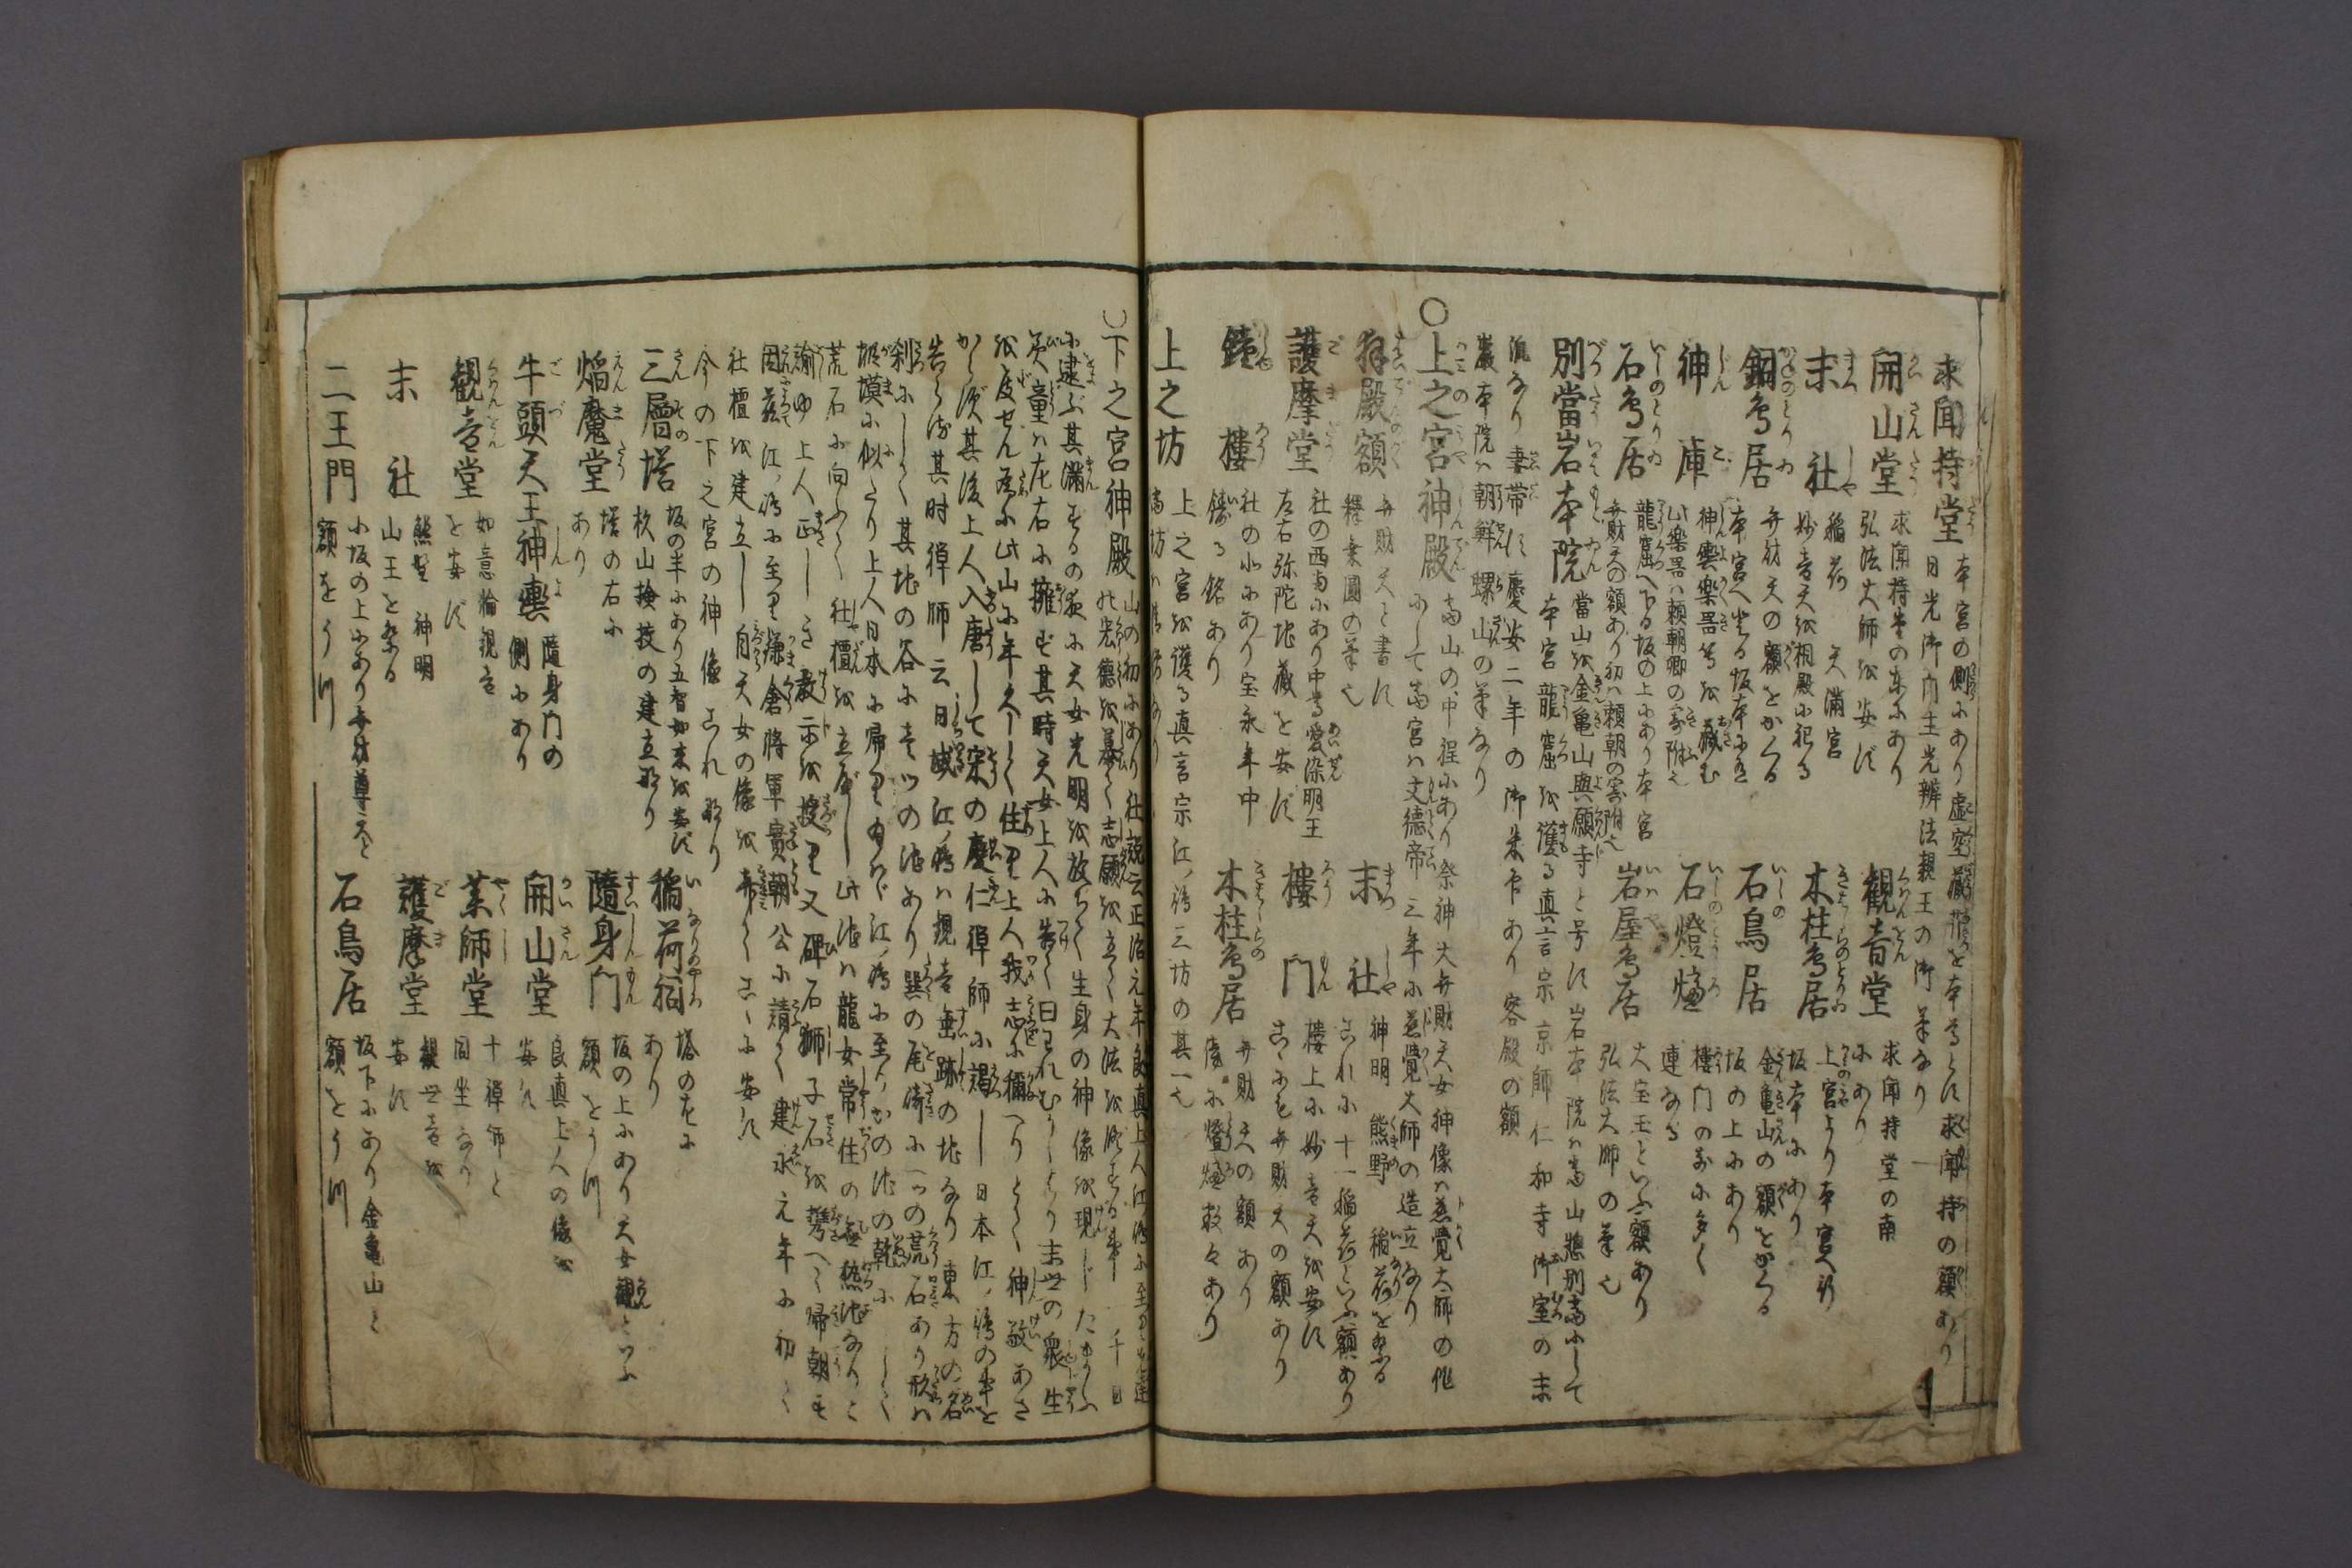 求聞持堂 本宮の側にあり虚空蔵を本尊とす求聞持の額あり
日光御門主光辨法親王の御筆なり
開山堂 求聞持堂の東にあり
弘法大師を安ず
観音堂 求聞持堂の南
にあり
末社 稲荷 天満宮
妙音天を相殿に祀る
木柱鳥居 上宮より本宮へ行
坂本にあり
銅鳥居 本宮へ登る坂本にあり
弁財天の額をかくる
石鳥居 金亀山の額をかくる
坂の上にあり
神庫 神輿楽器等を蔵む
此楽器は頼朝卿の寄附也
石燈爐 樓門の前に多く
連なる
石鳥居 龍窟へ下る坂の上にあり本宮
弁財天の額あり初は頼朝の寄附也
岩屋鳥居 大宝玉といふ額あり
弘法大師の筆也
別當岩本院 當山を金亀山與願寺と号す岩本院は当山惣別当にして
本宮龍窟を護る真言宗京師仁和寺御室の末
派なり妻帯す慶安二年の御朱印あり客殿の額
巌本院は朝鮮螺山の筆なり
○上之宮神殿 当山の中程にあり祭神大弁財天女神像は慈覺大師の作
にして当宮は文徳帝三年に慈覺大師の造立なり
拝殿額 弁財天と書す
釋乗圓の筆也
末社 神明 熊野 稲荷を祭る
これに十一稲荷といふ額あり
護摩堂 社の西南にあり中尊愛染明王
左右弥陀地蔵を安ず
樓門 樓上に妙音天を安ず
こゝにも弁財天の額あり
鐘樓 社の北にあり宝永年中
鋳る銘あり
木柱鳥居 弁財天の額あり
傍に燈爐数々あり
上之坊 上之宮を護る真言宗江ノ嶋三坊の其一也
当坊は清僧なり
○下之宮神殿 山の初にあり社説云正治元年良真上人江ノ嶋に至り
此光徳を慕ひて志願を立て大法を修する事一千日
に逮ぶ其満するの夜に天女光明を放ちて生身の神像を現じたまふ
美童は左右に擁す其時天女上人に告て曰われむかしより末世の衆生
を度せん為に此山に年久しく住り上人我志に稱へりとて神敬あさ
からず其後上人入唐して宋の慶仁禅師に謁し日本江ノ嶋の事を
告らす其时禅師云日域江ノ嶋は観音垂跡の地なり東方の名
刹にして其地の谷に壱ツの池あり巽の尾崎に一ッの荒石あり形は
堀蟆に似たり上人日本に帰りおよび江ノ嶋に至りかの池の乾にして
荒石に向ふて社檀を立べし此池は龍女常住の無熱池なりと
諭ゆ上人正しき教示を授り又碑石獅子石を携へて帰朝も
因茲江ノ嶋に至り鎌倉將軍實朝公に請て建永元年に初て
社檀を建立し自天女の像を彫てこゝに安ず
今の下之宮の神像これなり
三層塔 坂の半にあり五智如来を安ず
杉山検校の建立なり
稲荷祠 塔の左に
あり
焔魔堂 塔の右に
あり
隨身門 坂の上にあり天女觀といふ
額をうつ
牛頭天王神輿 隨身门の
側にあり
開山堂 良真上人の像を
安ず
観音堂 如意輪観音
を安ず
薬師堂 十禅师と
同坐なり
末社 熊野 神明
山王を祭る
護摩堂 観世音を
安ず
二王門 小坂の上にあり弁財尊天と
額をうつ
石鳥居 坂下にあり金亀山と
額をうつ